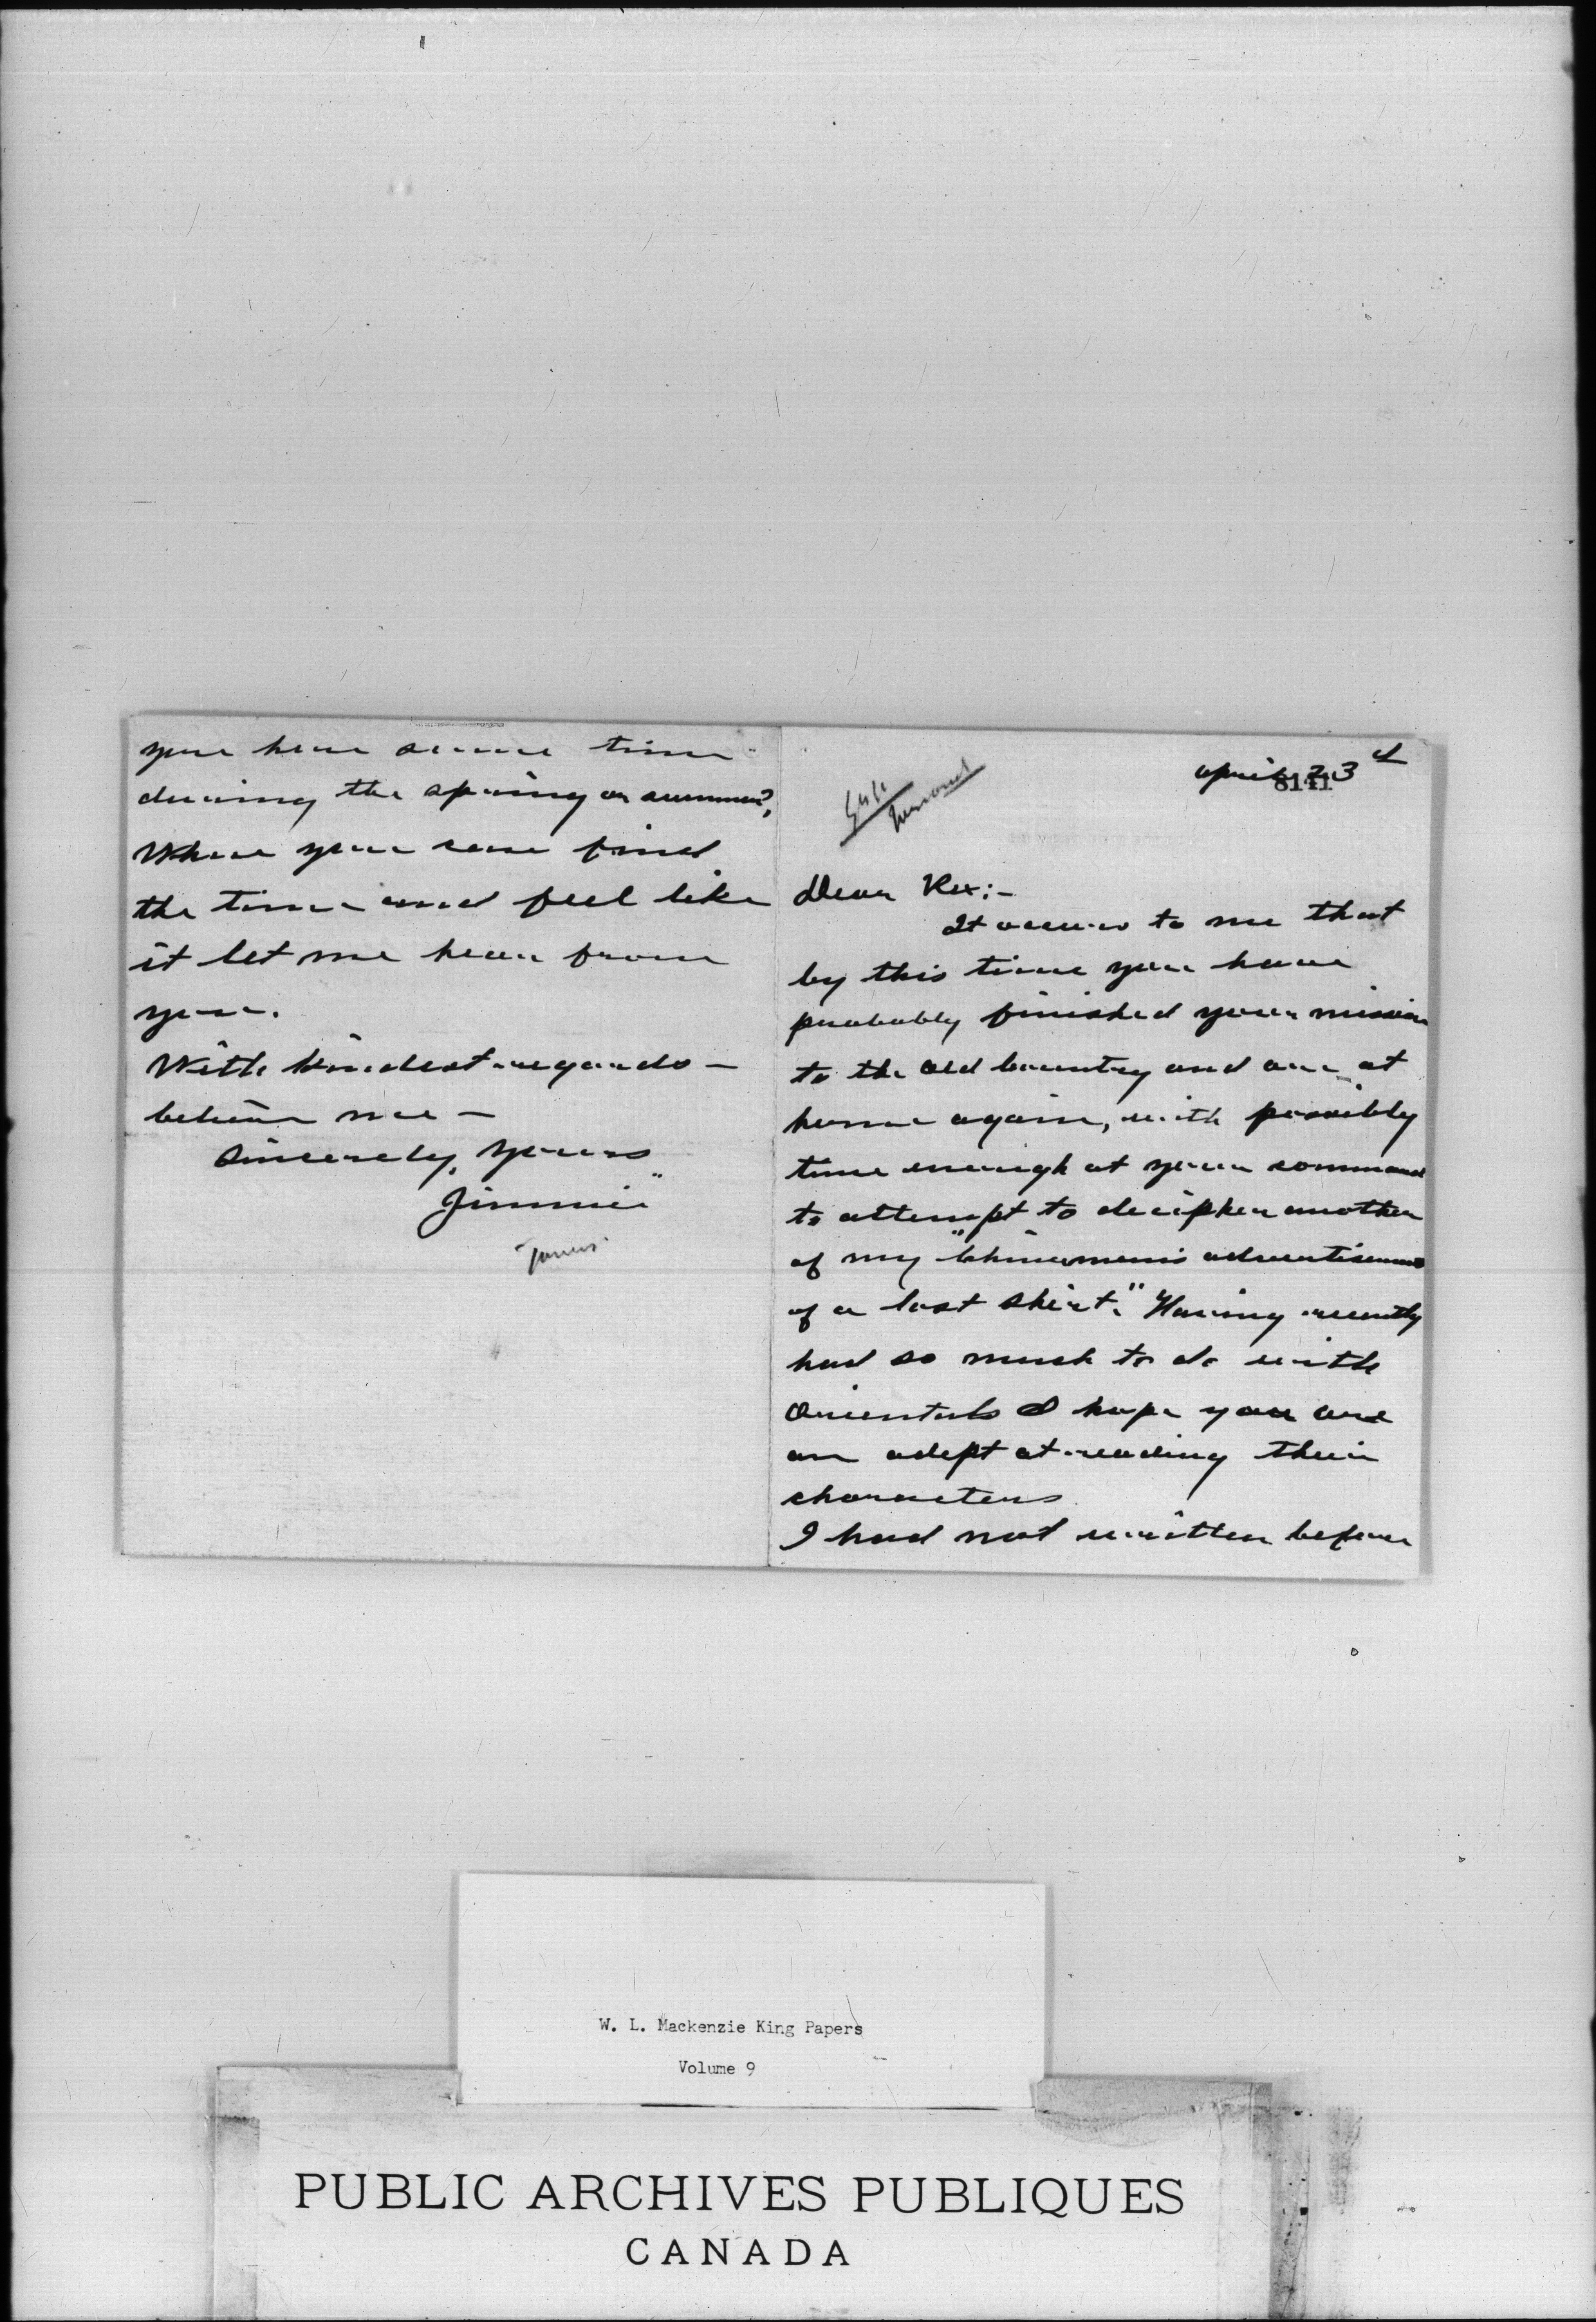 you here some time
during the spring or summer?
When you can find
the time and feel like
it let me hear from
you.
With kindest regards —
believe me —
Sincerely, Yours
"Jimmie"
April 23rd
8141
Personal
Dear Rex:—
It occurs to me that
by this time you have
probably finished your mission
to the Old Country and are at
home again, with possibly
time enough at your command
to attempt to decipher another
of my "Chinamen's advertisements
of a lost shirt." Having recently
had so much to do with
Orientals I hope you are
an adept at reading their
characters
I had not written before
W. L. Mackenzie King Papers
Volume 9
PUBLIC ARCHIVES PUBLIQUES
CANADA